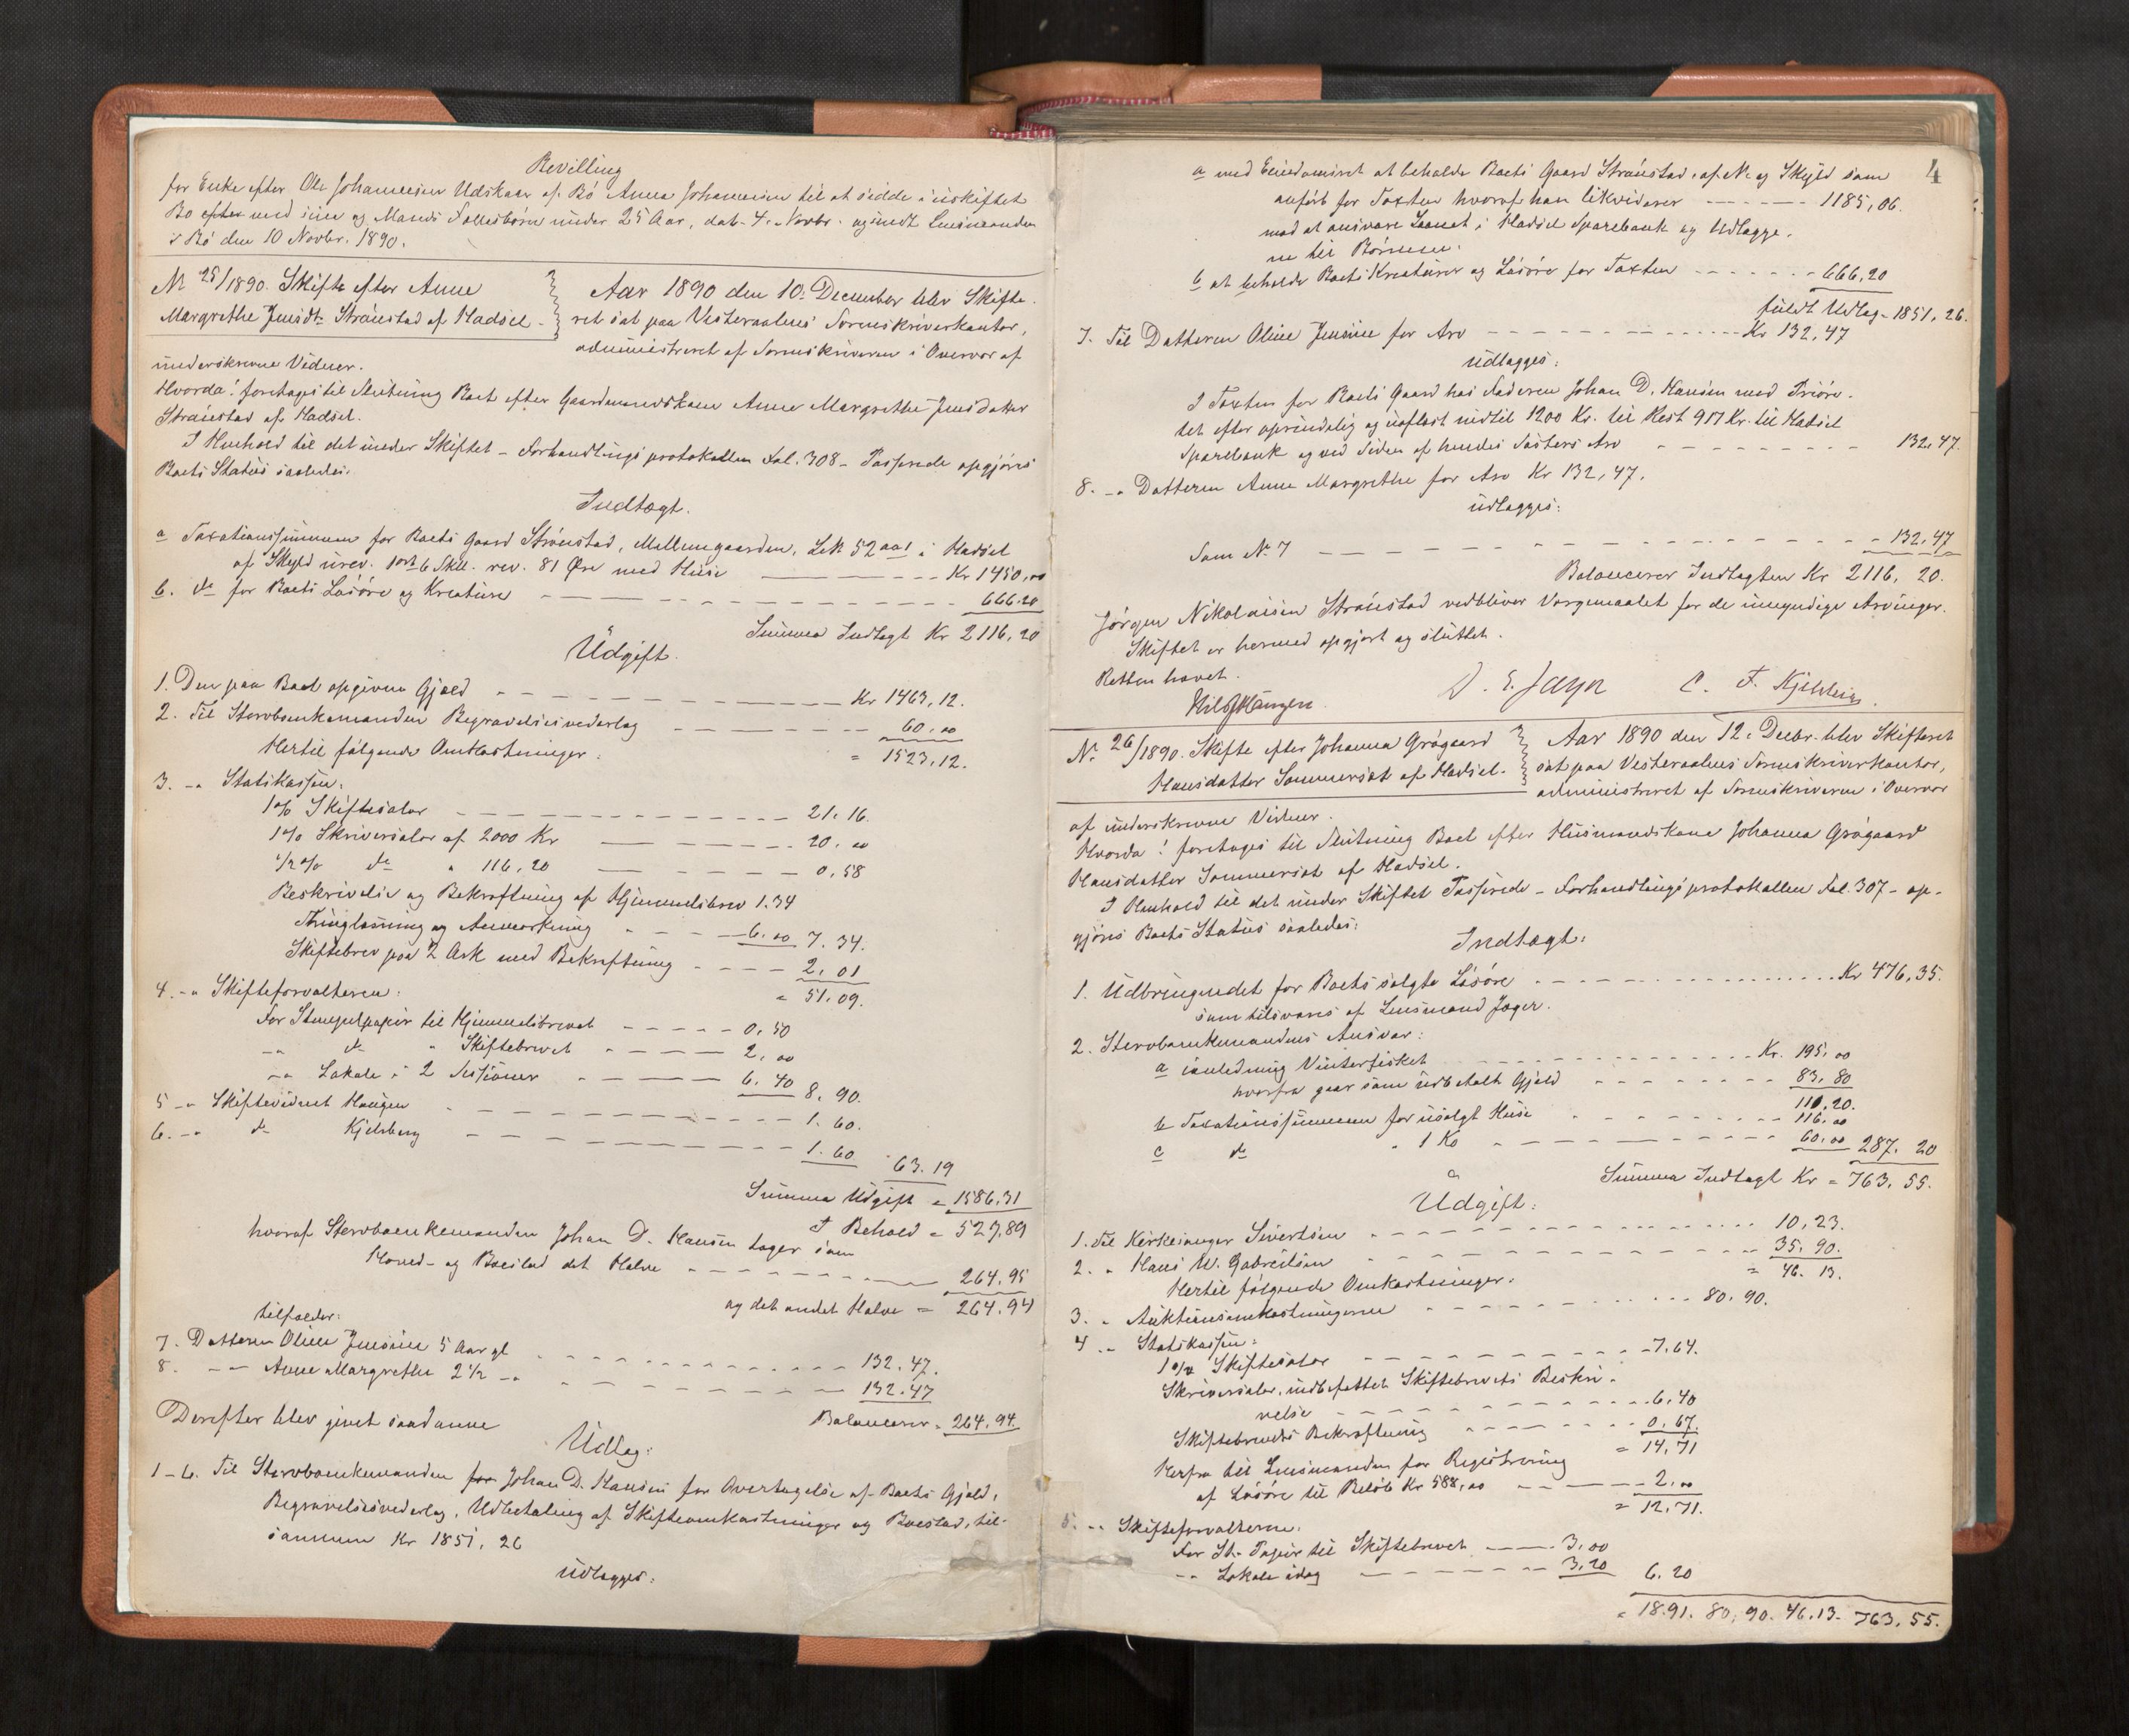 Bevilling
for Enke efter Ole Johannesen Udskaar af Bø Anna Johannesen til at sidde i uskiftet
Bo efter med sine og Mands Fællesbørn under 25 Aar, dat. 4. Novbr. og sendt Lensmanden
i Bø den 10 Novbr. 1890.
No 25/1890. Skifte efter Anne
Margrethe Jensdt. Straustad af Hadsel.
Aar 1890 den 10. December blev Skifte-
ret sat paa Vesteraalens Sorenskriverkontor,
administreret af Sorenskriveren i Overvær af
underskrevne Vidner.
Hvorda! foretages til Slutning Boet efter Gaardmandskone Anne Margrethe Jensdatter
Straustad af Hadsel.
I Henhold til det under Skiftet - Forhandlingsprotokollen Fol. 308 - Passerede opgjøres
Boets Status saaledes:
Indtægt.
a Taxationssummen for Boets Gaard Straustad, Mellemgaarden, L.No 52 aa1 i Hadsel
af Skyld urev. 1 ort 6 Skil. rev. 81 Øre med Huse Kr 1450,00
b. do for Boets Løsøre og Kreature 666.20
Summa Indtægt Kr 2116,20
Udgift.
1. Den paa Boet opgivne Gjæld Kr 1463,12.
2. Til Stervboenkemanden Begravelsesvederlag 60,00
Hertil følgende Omkostninger: = 1523,12.
3. -" Statskassen:
1% Skiftesalær 21.16.
1% Skriversalær af 2000 Kr 20,00
1/2% do " 116,20 0,58
Beskrivelse og Bekræftning af Hjemmelsbrev 1.34
Thinglæsning og Anmærkning 6.00 7.34.
Skiftebrev paa 2 Ark med Bekræftning 2,01
= 51,09.
4. -" Skifteforvalteren:
For Stempelpapir til Hjemmelsbrevet 0,50
-" do " Skiftebrevet 2,00
-" Lokale i 2 Sessioner 6.40 8,90.
5 -" Skiftevidnet Haugen 1.60.
6. -" do Kjelsberg 1.60 63.19
Summa Udgift = 1586.31
I Behold = 529,89
hvoraf Stervboenkemanden Johan D. Hansen tager som
Hoved- og Boeslod det Halve 264.95
og det andet Halve = 264.94
tilfalder:
7. Datteren Oline Jensine 5 Aar gl 132.47.
8. -" Anne Margrethe 2 1/2 -" 132.47
Balancerer = 264.94.
Derefter blev givet saadanne
Udlæg:
1-6. Til Stervboenkemanden for Johan D. Hansen for Overtagelse af Boets Gjæld,
Begravelsesvederlag, Udbetaling af Skifteomkostninger og Boeslod, til-
sammen Kr 1851,26
udlægges:
4
a med Eiendomsret at beholde Boets Gaard Straustad, af No og Skyld som
anført for Taxten hvoraf han likviderer 1185,06.
mod at ansvare Laanet i Hadsel Sparebank og Udlægge-
ne til Børnene.
b at beholde Boets Kreaturer og Løsøre for Taxten 666,20
fuldt Udlæg - 1851,26.
7. Til Datteren Oline Jensine for Arv Kr 132,47
udlægges:
I Taxten for Boets Gaard hos Faderen Johan D. Hansen med Priori-
tet efter oprindelig og uafløst indtil 1200 Kr. til Rest 917 Kr. til Hadsel
Sparebank og ved Siden af hendes Søsters Arv 132.47.
8. -" Datteren Anne Margrethe for Arv Kr 132,47.
udlægges:
Som No 7 132,47
Balancerer Indtægten Kr 2116,20.
Jørgen Nikolaisen Straustad vedbliver Værgemaalet for de umyndige Arvinger.
Skiftet er hermed opgjort og sluttet.
Retten hævet.
D. E. Jayn C. F. Kjelsberg
Nils J Haugen
No 26/1890. Skifte efter Johanna Grøgaard
Hansdatter Sommersæt af Hadsel.
Aar 1890 den 12. Decbr. blev Skifteret
sat paa Vesteraalens Sorenskriverkontor,
administreret af Sorenskriveren i Overvær
af underskrevne Vidner.
Hvorda! foretages til Slutning Boet efter Husmandskone Johanna Grøgaard
Hansdatter Sommersæt af Hadsel.
I Henhold til det under Skiftet Passerede - Forhandlingsprotokollen Fol. 307 - op-
gjøres Boets Status saaledes:
Indtægt:
1. Udbringendet for Boets solgte Løsøre Kr 476,35.
som tilsvares af Lensmand Jæger.
2. Stervboenkemandens Ansvar:
a i anledning Vinterfisket Kr. 195,00
hvorfra gaar som udbetalt Gjæld 83,80
111,20.
b Taxationssummen for usolgt Huse 116,00
c do " 1 Ko 60,00 287.20
Summa Indtægt Kr = 763.55.
Udgift:
1. Til Kirkesanger Sivertsen 10,23.
2. " Hans W. Gabrielsen 35.90.
Hertil følgende Omkostninger: = 46.13.
3. " Auktionsomkostningerne 80.90.
4 -" Statskassen:
1% Skiftesalær 7.64.
Skriversalær, indbefattet Skiftebrevets Beskri-
velse 6,40
Skiftebrevets Bekræftning 0.67.
= 14,71
Herfra til Lensmanden for Registrering
af Løsøre til Beløb Kr 588,00 2,00
= 12,71.
5. -" Skifteforvalteren:
For St. Papir til Skiftebrevet 3,00
-" Lokale idag 3,20 6.20
= 18.91. 80,90. 46.13. 763,55.